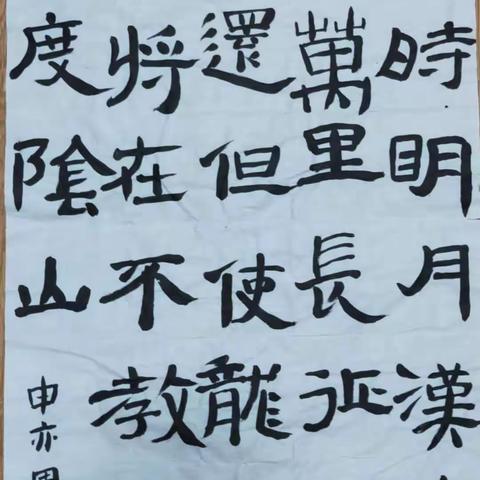 時明月漢
萬里長征
還但使龍
將在不教
度陰山
申亦